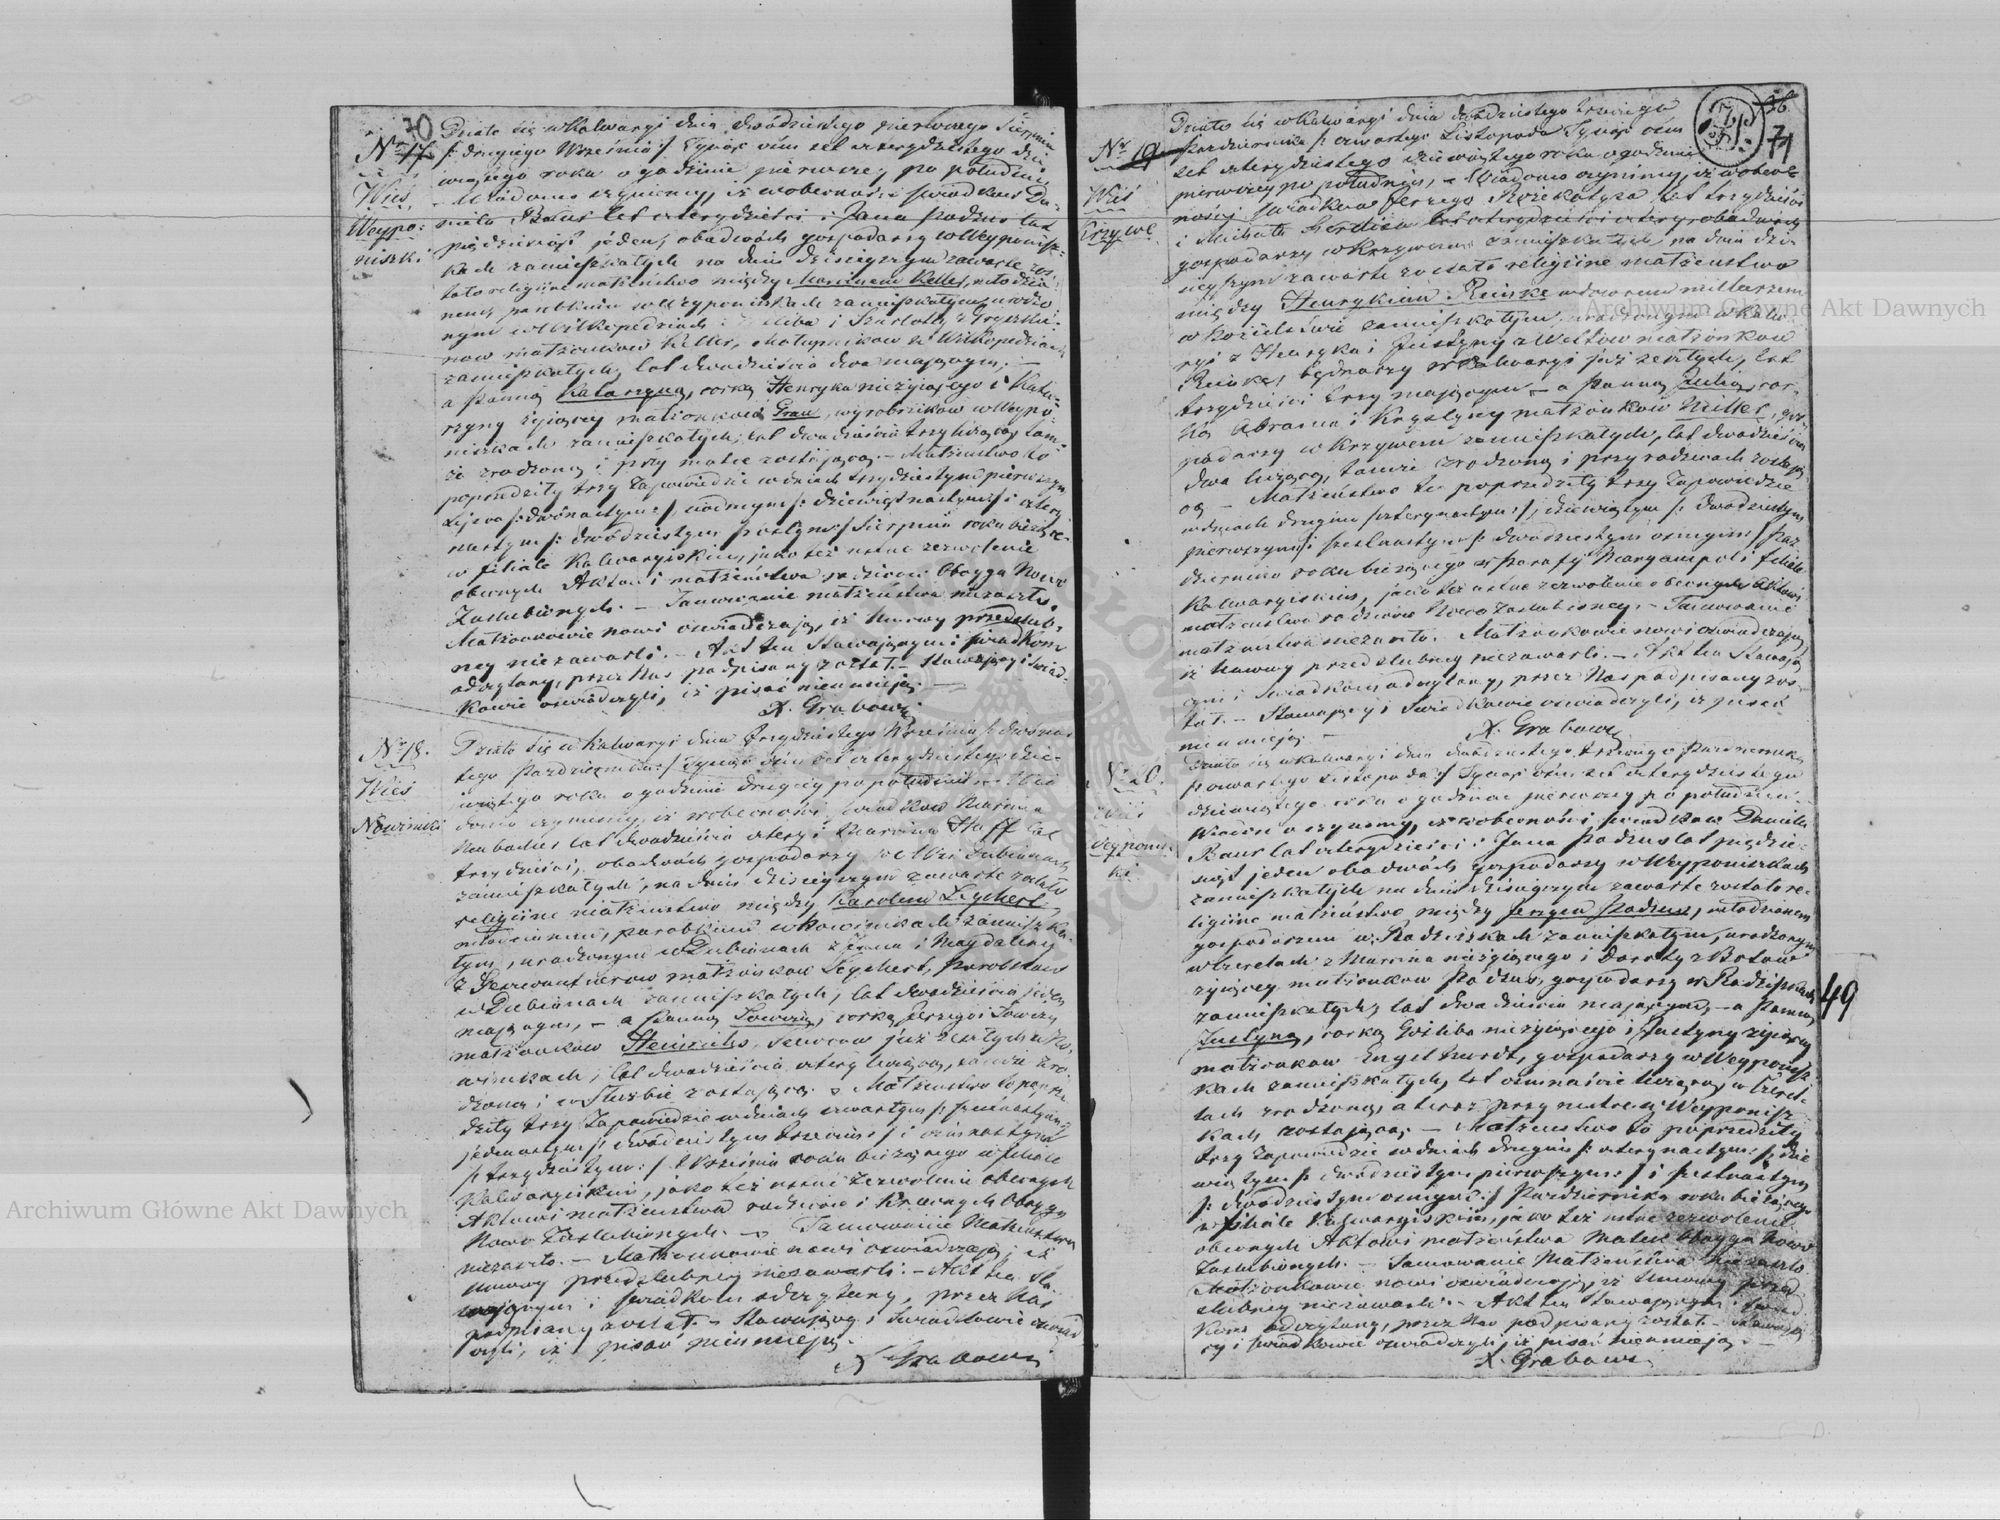 70
Nr 17.
Wieś
Weypo:
niszki
Działo się w Kalwaryi dnia dwódziestego pierwszego Sierpnia
/: drugiego Września :/ Tysiąc ośm set czterydziestego dzie
wiątego roku o godzinie pierwszey po południu,
Wiadomo czyniemy, iż w obecności świadków Da-
niela Baus lat czterydzieści i Jana Padzus lat
pięćdziesiąt jeden, obadwóch gospodarzy w Weyponisz-
kach zamieszkałych na dniu dzisieyszym zawarte zos-
tało religijne małżeństwo między Marcinem Keller, młodzia
nem, parobkiem w Weyponiszkach zamieszkałym, urodzo
nym w Wilkopedziach i Szarloty z
now małżonków Keller, w Wilkopedziach
zamieszkałych, lat dwadzieścia dwa mającym, —
a Panną Katarzyną, córką Henryka nieżyjącego i Kata-
rzyny żyjącej małżonków Grau, wyrobników w Weypo-
niszkach zamieszkałych, lat dwadzieścia trzy liczącą, tam-
że zrodzoną i przy matce zostającą. — Małżeństwo to
poprzedziły trzy Zapowiedzie w dniach trzydziestym pierwszym
Lipca /: dwónastym :/, siódmym /: dziewiętnastym :/ i czter-
nastym /: dwódziestym szóstym :/ Sierpnia roku bieżące-
w filiale Kalwaryiskim, jako też ustne zezwolenie
obecnych Aktowi małżeństwa rodziców Oboyga Nowo
Zaślubionych. — Tamowanie małżeństwa niezaszło.
Małżonkowie nowi oświadczają, iż Umowy przedślub-
ney niezawarli. — Akt ten Stawającym i świadkom
odczytany, przez Nas podpisany został. — Stawający i świad-
kowie oświadczyli, iż pisać nieumieją. —
X. Grabows
Nr 18.
Wieś
Nowiniki
Działo się w Kalwaryi dnia trzydziestego Września /: dwónas
tego Października :/ Tysiąc ośm set czterydziestego dzie-
wiątego roku o godzinie drugiey po południu. — Wia
domo czyniemy, iż w obecności świadków Marcina
Neubacher lat dwadzieścia cztery i Marcina Hoff lat
trzydzieści, obadwóch gospodarzy we Wsi Dubianach
zamieszkałych, na dniu dzisieyszym zawarte zostało
religijne małżeństwo między Karolem Leghert,
młodzianem, parobkiem w Nowinikach zamieszka-
łym, urodzonym w Dubianach z Jana i Magdaleny
z małżonków Leghert, parobków
w Dubianach zamieszkałych, lat dwadzieścia jeden
mającym, — a Panną Lowizą, córką Jerzego i Lowizy
małżonków Heinrichs, już zmarłych w No-
winikach, lat dwadzieścia cztery liczącą, tamże zro-
dzoną i w Służbie zostającą. — Małżeństwo to poprze-
dziły trzy Zapowiedzie w dniach czwartym /: szesnastym :/
jedenastym /: dwódziestym trzecim :/ i ośmnastym
/: trzydziestym :/ Września roku bieżącego w filiale
Kalwaryiskim, jako też ustne zezwolenie obecnych
Aktowi małżeństwa rodziców i Krewnych Oboyga
Nowo Zaślubionych. — Tamowanie Małżeństwa
niezaszło. — Małżonkowie nowi oświadczają, iż
Umowy przedślubney niezawarli. — Akt ten Sta
wającym i świadkom odczytany, przez Nas
podpisany został. — Stawający i Świadkowie oświad
czyli, iż pisać nieumieją.
X. Grabows
71
Nr 19
Wieś
Krzywe
Działo się w Kalwaryi dnia dwódziestego trzeciego
Października /: czwartego Listopada :/ Tysiąc ośm
set czterydziestego dziewiątego roku o godzinie
pierwszey po południu, — Wiadomo czyniemy, iż w obec-
ności świadków Jerzego lat trzydzieści
i Michała lat czterydzieści cztery, obadwóch
gospodarzy w Krzywem zamieszkałych na dniu dzi-
sieyszym zawarte zostało religijne małżeństwo
między Henrykiem Reinke wdowcem młynarzem
w zamieszkałym, urodzonym w Kalwa-
ryi z Henryka i Justyny z małżonków
Reinke, bednarzy w Kalwaryi już zmarłych, lat
trzydzieści trzy mającym — a Panną Julią, cór-
ką Abrama i Krystyny małżonków Miller, gos-
podarzy w Krzywem zamieszkałych, lat dwadzieścia
dwa liczącą, tamże zrodzoną i przy rodzicach zostają-
cą — Małżeństwo to poprzedziły trzy Zapowiedzie
w dniach drugim /: czternastym :/, dziewiątym /: dwódziestym
pierwszym :/ i szesnastym /: dwódziestym ósmym :/ Paź
dziernika roku bieżącego w Parafii Maryampol i filiale
Kalwaryiskim, jako też ustne zezwolenie obecnych Aktowi
małżeństwa rodziców Nowo Zaślubioney. — Tamowanie
małżeństwa niezaszło. Małżonkowie nowi oświadczają
iż Umowy przedślubney niezawarli. — Akt ten Stawają-
cym i Świadkom odczytany, przez Nas podpisany zos-
tał. — Stawający i Świadkowie oświadczyli, iż pisać
nieumieją. —
X. Grabows
Nr 20.
Wieś
Weyponisz
ki
Działo się w Kalwaryi dnia dwódziestego trzeciego Października
/: czwartego Listopada :/ Tysiąc ośm set czterydziestego
dziewiątego roku o godzinie pierwszey po południu. —
Wiadomo czyniemy, iż w obecności świadków Daniela
Baus lat czterydzieści i Jana Padzus lat pięćdzie-
siąt jeden obadwóch gospodarzy w Weyponiszkach
zamieszkałych na dniu dzisieyszym zawarte zostało re-
ligijne małżeństwo między Jerzym Padzus, młodzianem
gospodarzem w Radziszkach zamieszkałym, urodzonym
w z Marcina nieżyjącego i Doroty z
żyjącey małżonków Padzus, gospodarzy w Radziszkach
zamieszkałych, lat dwadzieścia mającym, — a Panną
Justyną, córką Gotliba nieżyjącego i Justyny żyjącey
małżonków Engelhardt, gospodarzy w Weyponisz-
kach zamieszkałych, lat ośmnaście liczącą, w
zrodzoną, a teraz przy matce w Weyponisz-
kach zostającą. — Małżeństwo to poprzedziły
trzy Zapowiedzie w dniach drugim /: czternastym :/, dzie
wiątym /: dwódziestym pierwszym :/ i szesnastym
/: dwódziestym ósmym :/ Października roku bieżącego
w filiale Kalwaryiskim, jako też ustne zezwolenie
obecnych Aktowi małżeństwa Matek Oboyga Nowo
Zaślubionych. — Tamowanie Małżeństwa niezaszło
Małżonkowie nowi oświadczają, iż Umowy przed
ślubney niezawarli. — Akt ten Stawającym i świad
kom odczytany, przez Nas podpisany został. — Stawają
cy i świadkowie oświadczyli, iż pisać nieumieją. —
X. Grabows
49
Archiwum Główne Akt Dawnych
Archiwum Główne Akt Dawnych